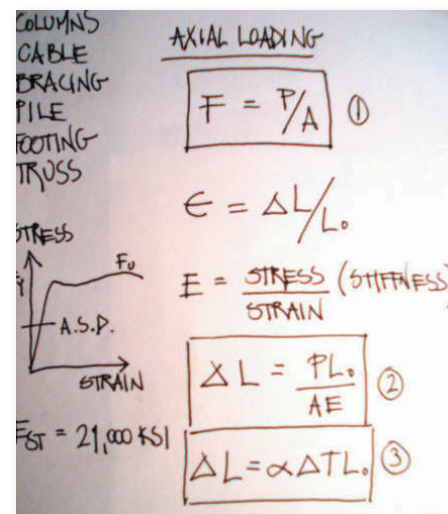 COLUMNS
CABLE
BRACING
PILE
FOOTING
TRUSS
STRESS
Fu
A.S.D.
STRAIN
EST = 21,000 KSI
AXIAL LOADING
F = P/A ①
ϵ = ΔL/L₀
E = STRESS/STRAIN (STIFFNESS)
ΔL = PL₀/AE ②
ΔL = αΔTL₀ ③